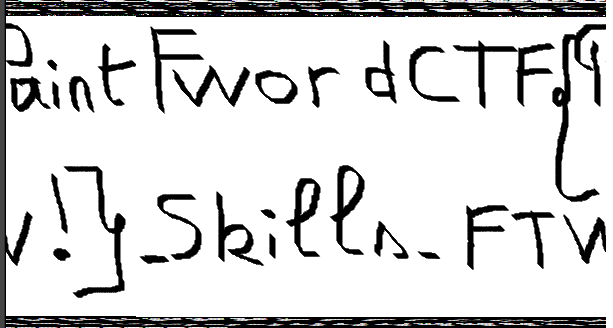 Paint FwordCTF{
!}_Skills_FTW